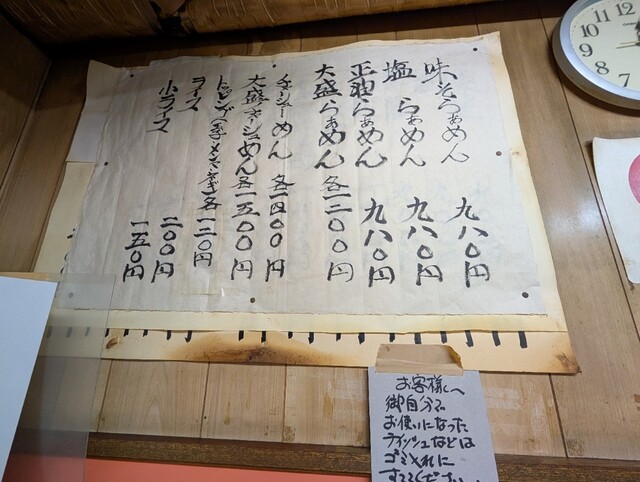 味そらぁめん 九八〇円
塩らぁめん 九八〇円
正油らぁめん 九八〇円
大盛らぁめん 各一二〇〇円
チャーシューめん 各一四〇〇円
大盛チャーシュめん 各一五〇〇円
トッピング(玉子、メンマ、ネギ) 各一二〇円
ライス 二〇〇円
小ライス 一五〇円
お客様へ
御自分で
お使いになった
ティッシュなどは
ゴミ入れに
すててください
10 11 12
9
8
7